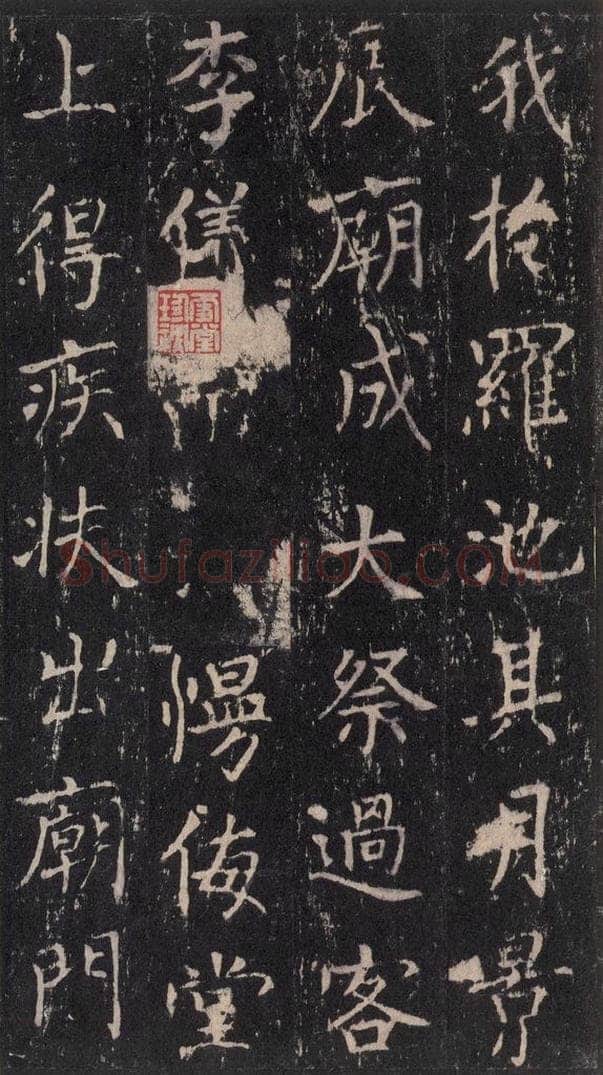 我扵羅池其月景
辰廟成大祭過客
李儀慢侮堂
上得疾扶出廟門
Shufaziliao.COM